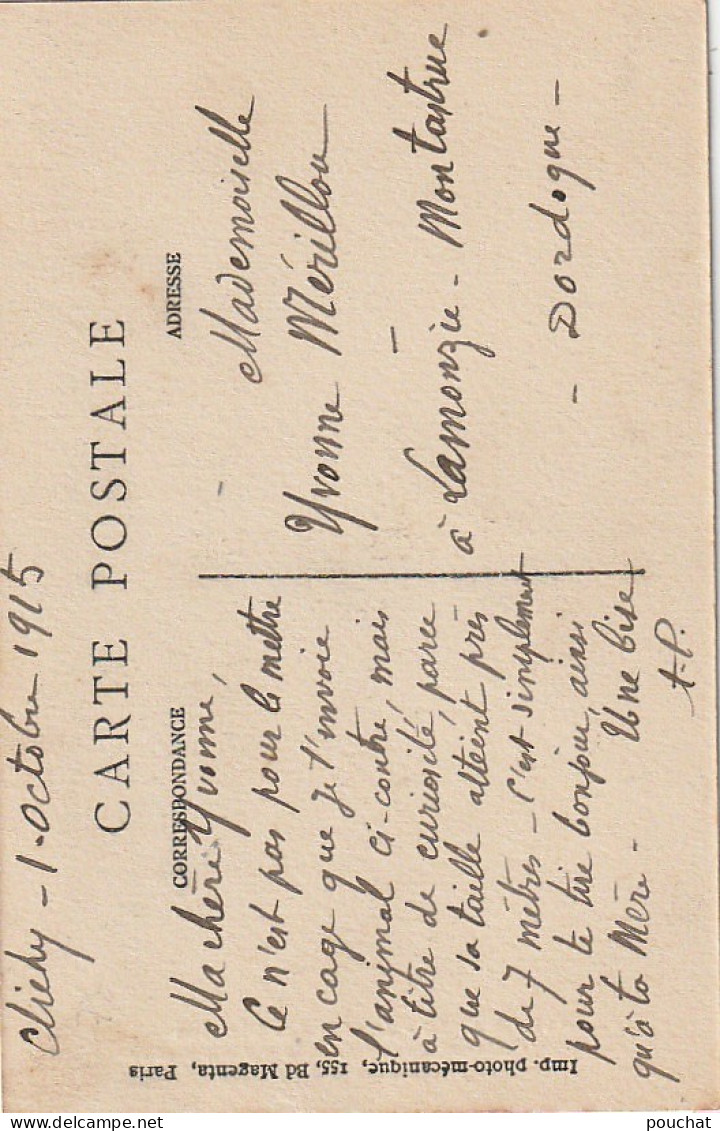 Clichy - 1. Octobre 1915
CARTE POSTALE
CORRESPONDANCE
ADRESSE
Ma chère Yvonne,
Ce n'est pas pour le mettre
en cage que je t'envoie
l'animal ci-contre, mais
à titre de curiosité, parce
que sa taille atteint près
de 7 mètres - C'est simplement
pour te dire bonjour, ainsi
qu'à ta Mère - Une bise
Mademoiselle
Yvonne Mérillou
à Lamonzie - Montastruc
- Dordogne -
Imp. photo-mécanique, 155, Bd Magenta, Paris
delcampe.net pouchat